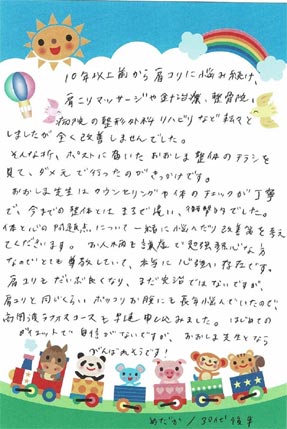 10年以上前から肩コリに悩み続け、
肩こりマッサージや針治療、整骨院、
病院の整形外科リハビリなど転々と
しましたが全く改善しませんでした。
そんな折、ポストに届いたおおしま整体のチラシを
見て、ダメ元で行ったのがきっかけです。
おおしま先生はカウンセリングや体のチェックが丁寧
で、今までの整体とはまるで違い、衝撃的でした。
体と心の問題点について一緒に悩んだり改善策を考え
てくださいます。お人柄も謙虚で勉強熱心な方
なのでとても尊敬していて、本当に心強い存在です。
肩コリもだいぶ良くなり、まだ完治ではないですが、
肩コリと同じくらいポッコリお腹にも長年悩んでいたので、
高周波ラジオスコースも早速申し込みました。はじめての
ダイエットで自信がないですが、おおしま先生となら
がんばれそうです!
めだか/30代後半